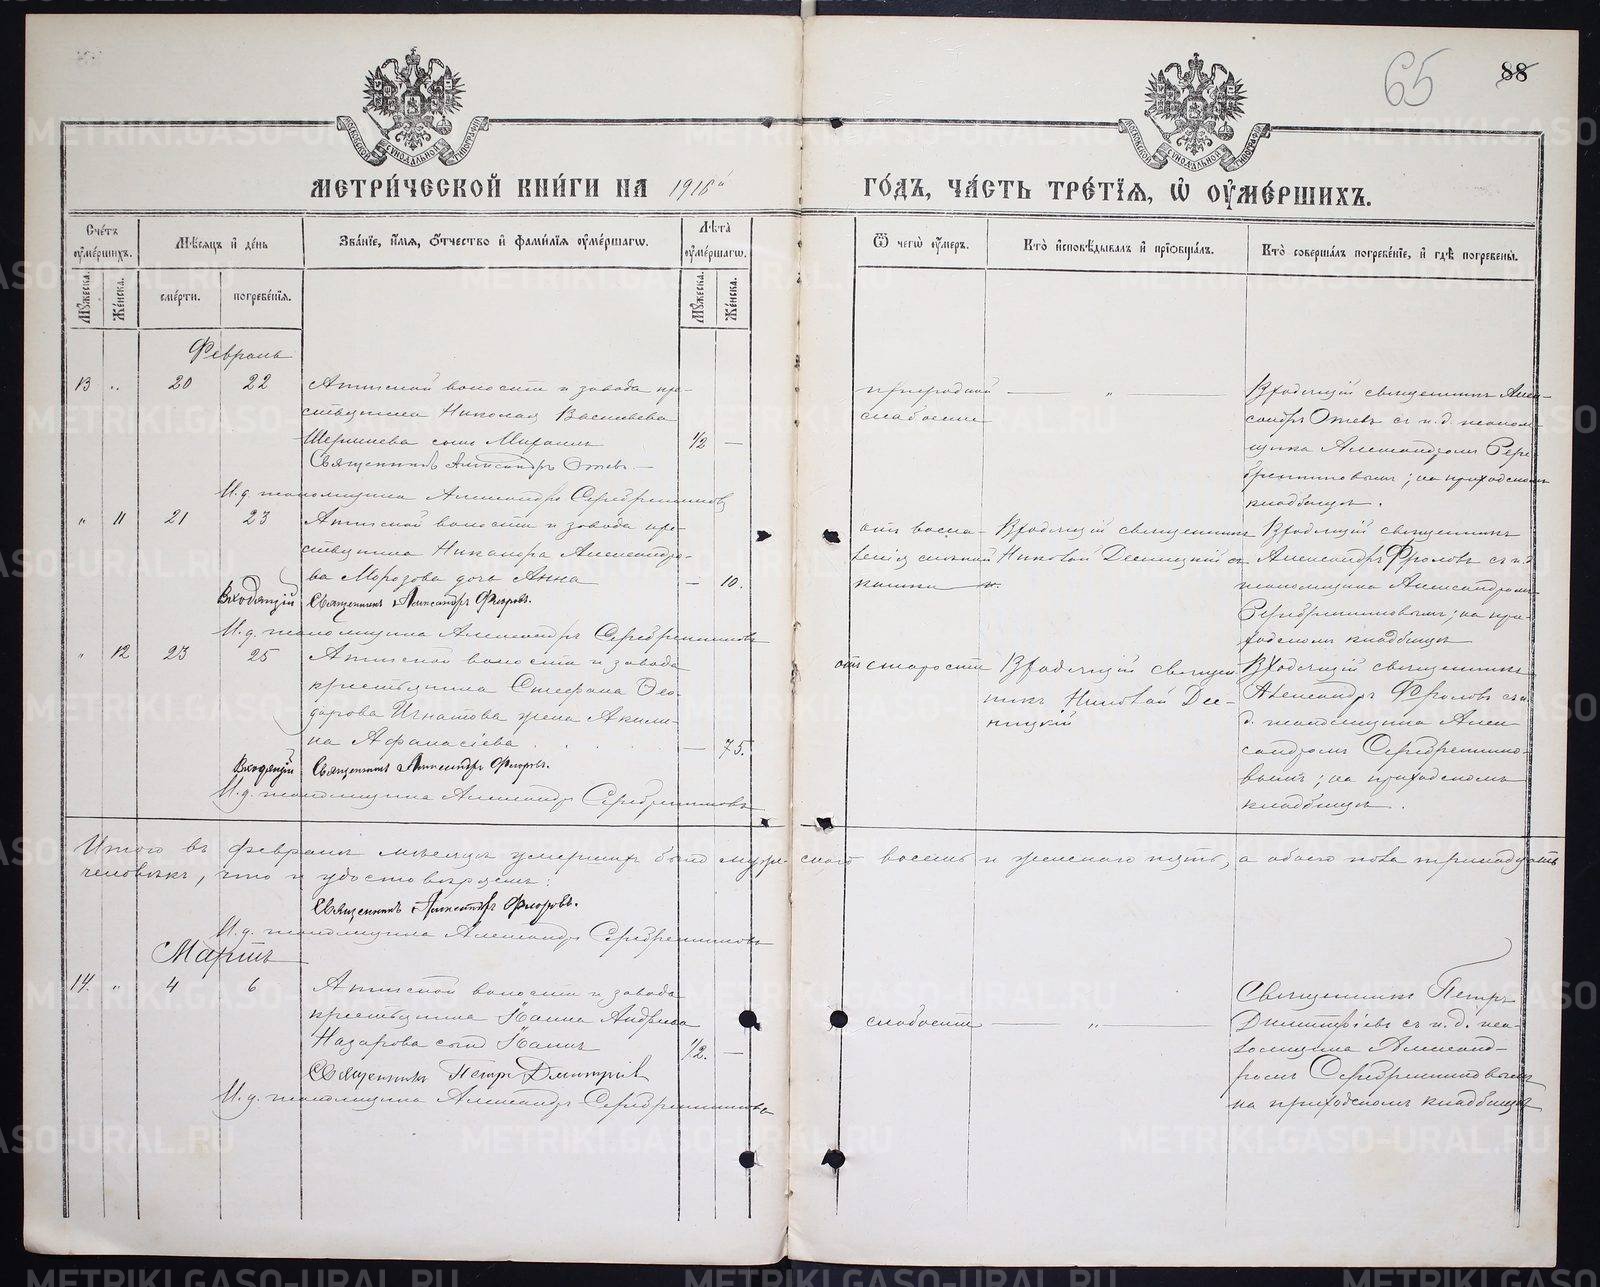 65
88
МЕТРИ́ЧЕСКОЙ КНИ́ГИ НА 1916й ГО́ДЪ, ЧА́СТЬ ТРЕ́ТІѦ, Ѡ ОУМЕ́РШИХЪ.
Сче́тъ оуме́ршихъ.
Мѣ́сяцъ и де́нь
Зва́нїе, и́мя, о́тчество и фами́лїя оуме́ршагѡ.
Лѣ́та оуме́ршагѡ.
Ѿ чегѡ̀ оу́меръ.
Кто̀ исповѣ́дывалъ и прїѡбща́лъ.
Кто̀ соверша́лъ погребе́нїе, и гдѣ̀ погребены̀.
Му́жеска.
Же́нска.
сме́рти.
погребе́нїя.
Му́жеска.
Же́нска.
Февраль
13 „ 20 22
волости и завода кре-
стьянина Николая Васильева
сынъ Михаилъ 1/2 —
Священникъ Александръ
И.д. псаломщика Александръ Серебренниковъ
природной
слабости
— „ —
Входящій священникъ Алек-
сандръ съ и.д. псалом-
щика Александромъ Сере-
бренниковымъ; на приходскомъ
кладбищѣ.
„ 11 21 23
волости и завода кре-
стьянина Никандра Александро-
ва Морозова дочь Анна — 10.
Входящій Священникъ Александръ Флоровъ.
И.д. псаломщика Александръ Серебренниковъ
отъ воспа-
ленія слѣпой
кишки
Входящій священникъ
Николай
Входящій священникъ
Александръ Фроловъ съ и.д.
псаломщика Александромъ
Серебренниковымъ; на при-
ходскомъ кладбищѣ
„ 12 23 25
волости и завода
крестьянина Стефана Ѳео-
дорова Игнатова жена Акили-
на Афанасіева — 75.
Входящій Священникъ Александръ Флоровъ.
И.д. псаломщика Александръ Серебренниковъ
отъ старости
Входящій священ-
никъ Николай
Входящій священникъ
Александръ Фроловъ съ и.
д. псаломщика Алек-
сандромъ Серебреннико-
вымъ; на приходскомъ
кладбищѣ.
Итого въ февралѣ мѣсяцѣ умершихъ было мужескаго восемь и женскаго пять, а обоего пола тринадцать
человѣкъ, что и удостовѣряемъ:
Священникъ Александръ Флоровъ.
И.д. псаломщика Александръ Серебренниковъ
Мартъ
14. „ 4 6
волости и завода
крестьянина Іоанна Андреева
Назарова сынъ Іоаннъ 1/2. —
Священникъ Петръ Димитріевъ
И.д. псаломщика Александръ Серебренниковъ
слабости
— „ —
Священникъ Петръ
Димитріевъ съ и.д. пса-
ломщика Александ-
ромъ Серебренниковымъ
на приходскомъ кладбищѣ
METRIKI.GASO-URAL.RU